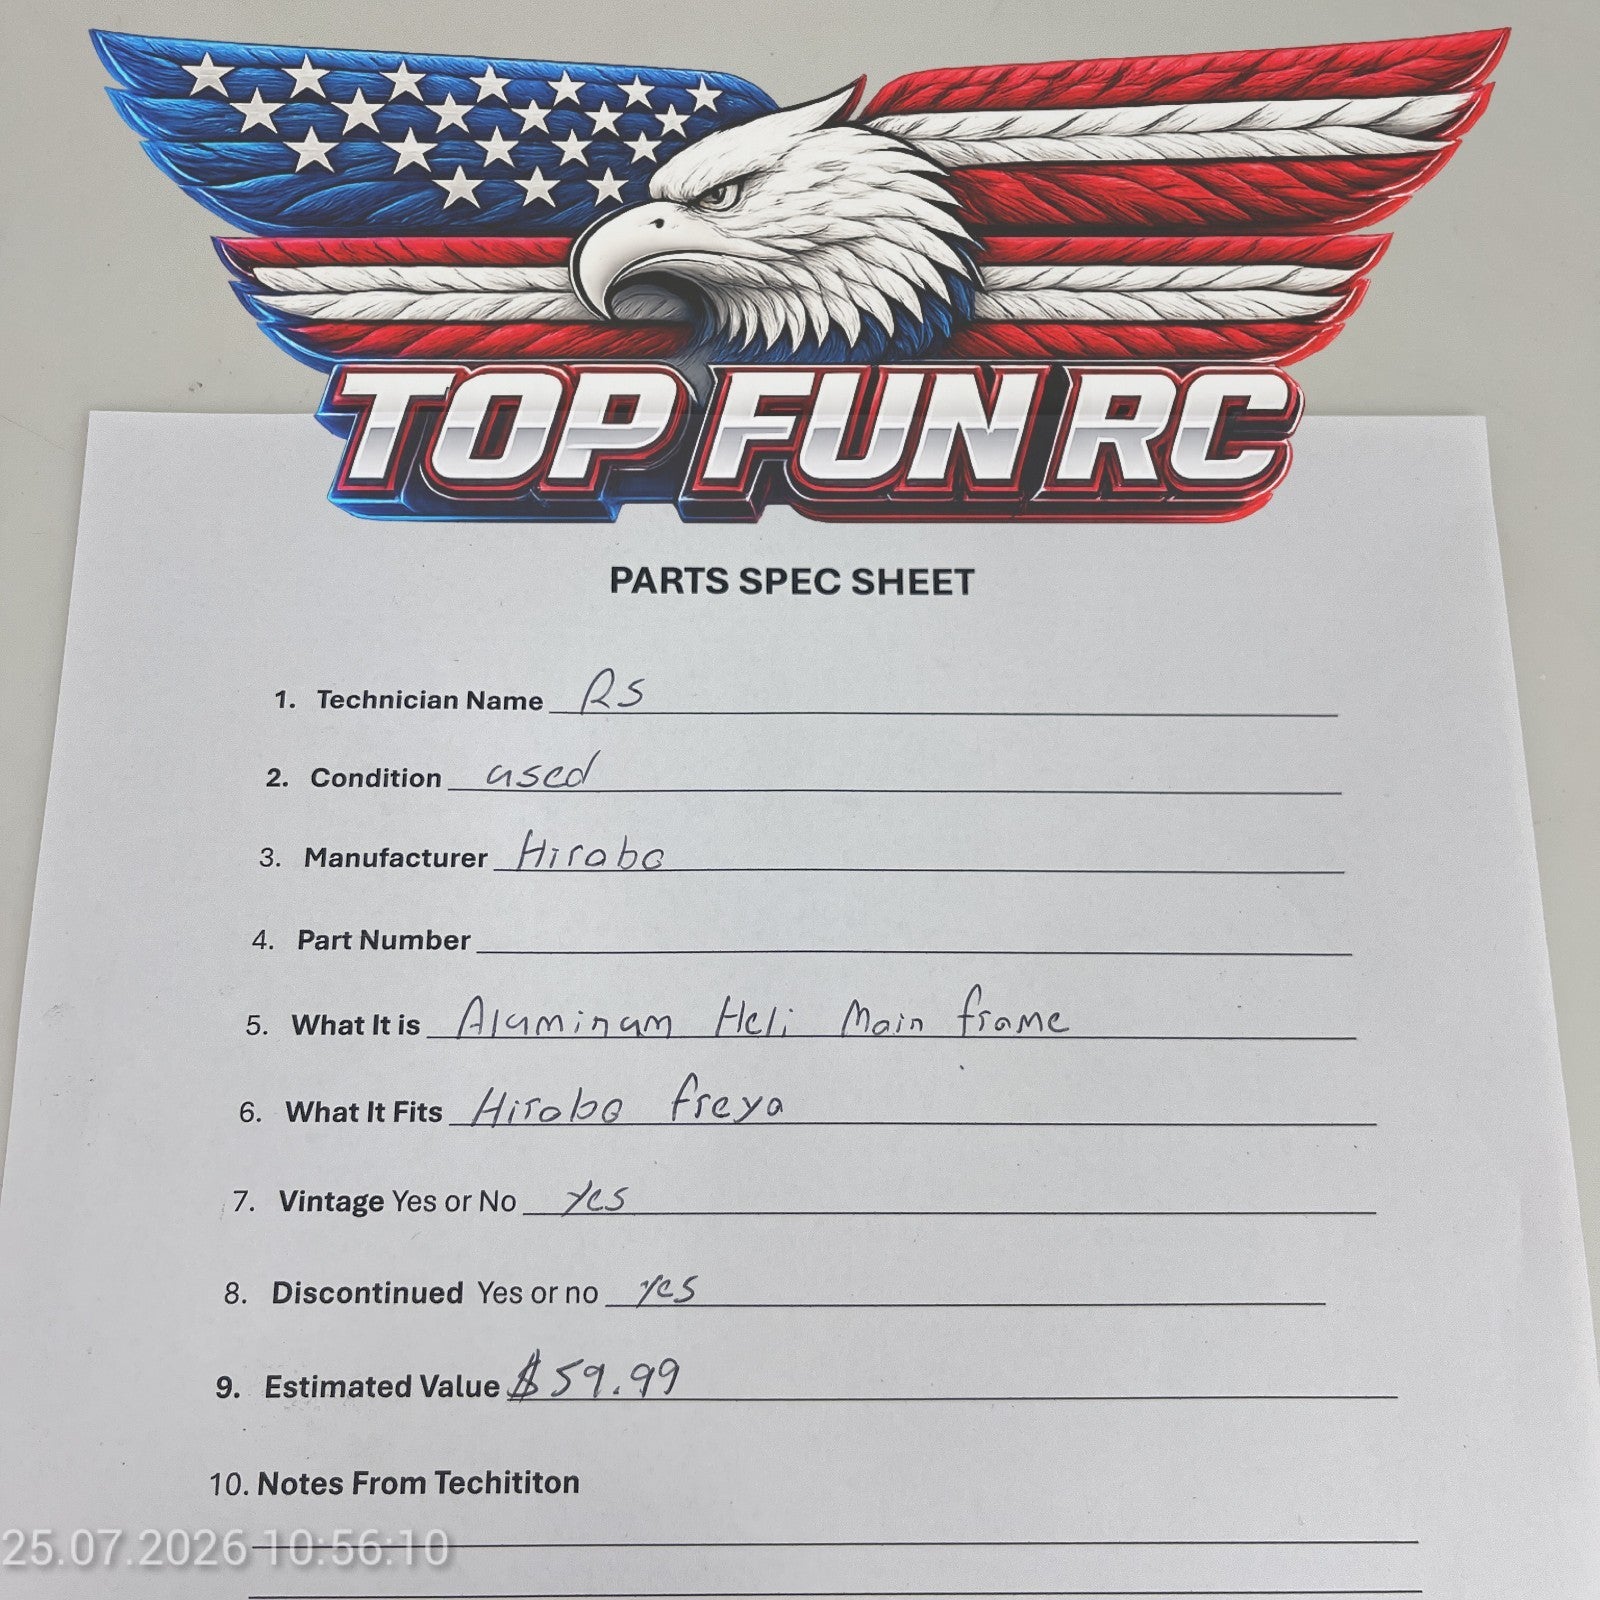 TOP FUN RC
PARTS SPEC SHEET
1. Technician Name RS
2. Condition used
3. Manufacturer Hirobo
4. Part Number
5. What It is Aluminum Heli Main frame
6. What It Fits Hirobo freya
7. Vintage Yes or No yes
8. Discontinued Yes or no yes
9. Estimated Value $59.99
10. Notes From Techititon
25.07.2026 10:56:10